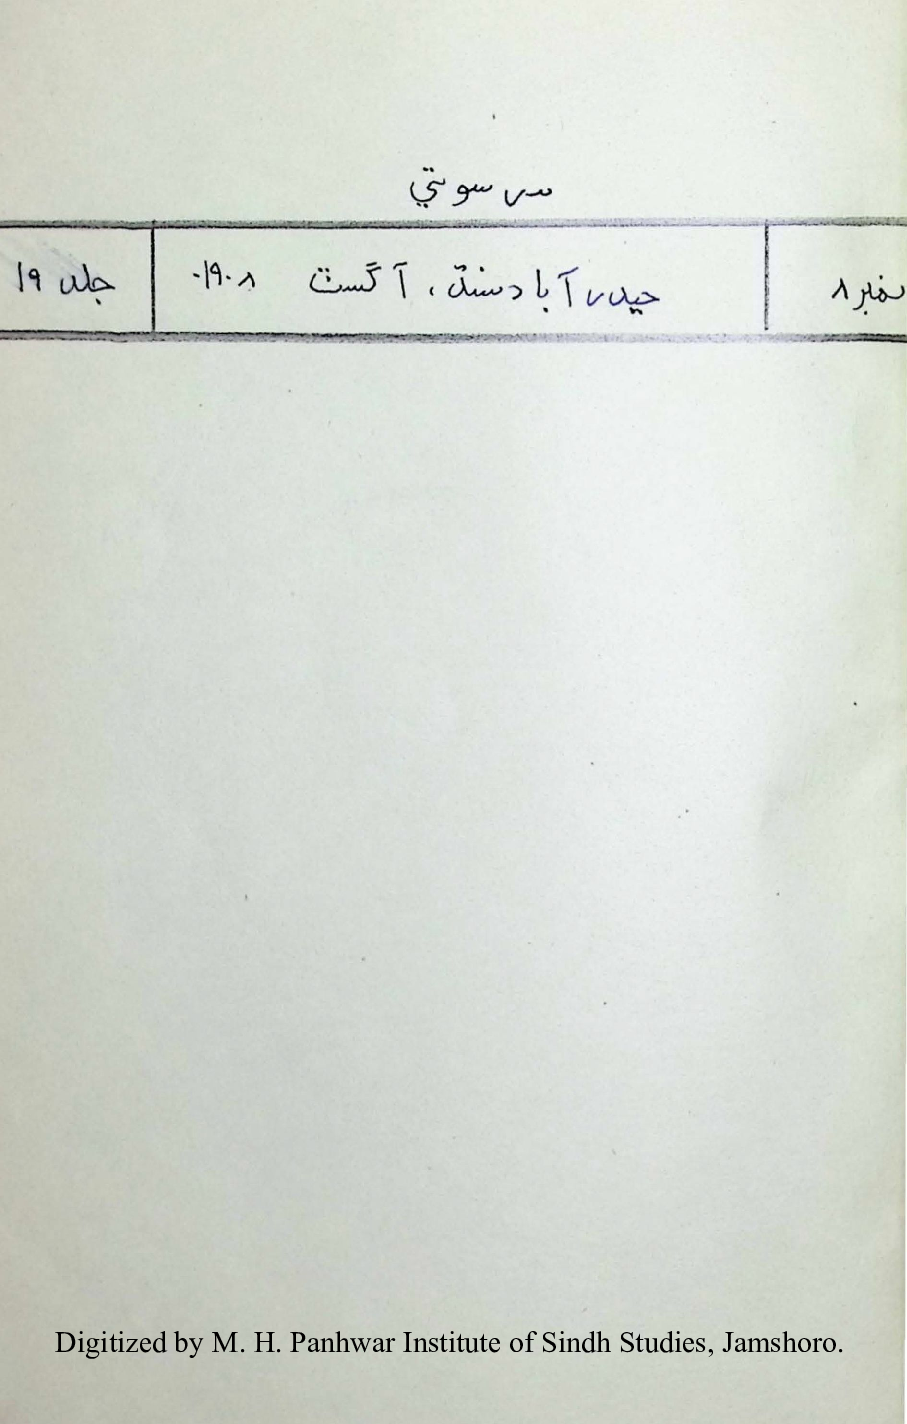 سرسوتي
نمبر ۸
حيدرآباد سنڌ، آگسٽ ۱۹۰۸
جلد ۱۹
Digitized by M. H. Panhwar Institute of Sindh Studies, Jamshoro.